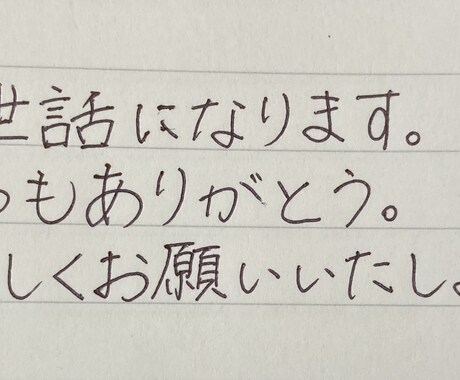 世話になります。
つもありがとう。
しくお願いいたし